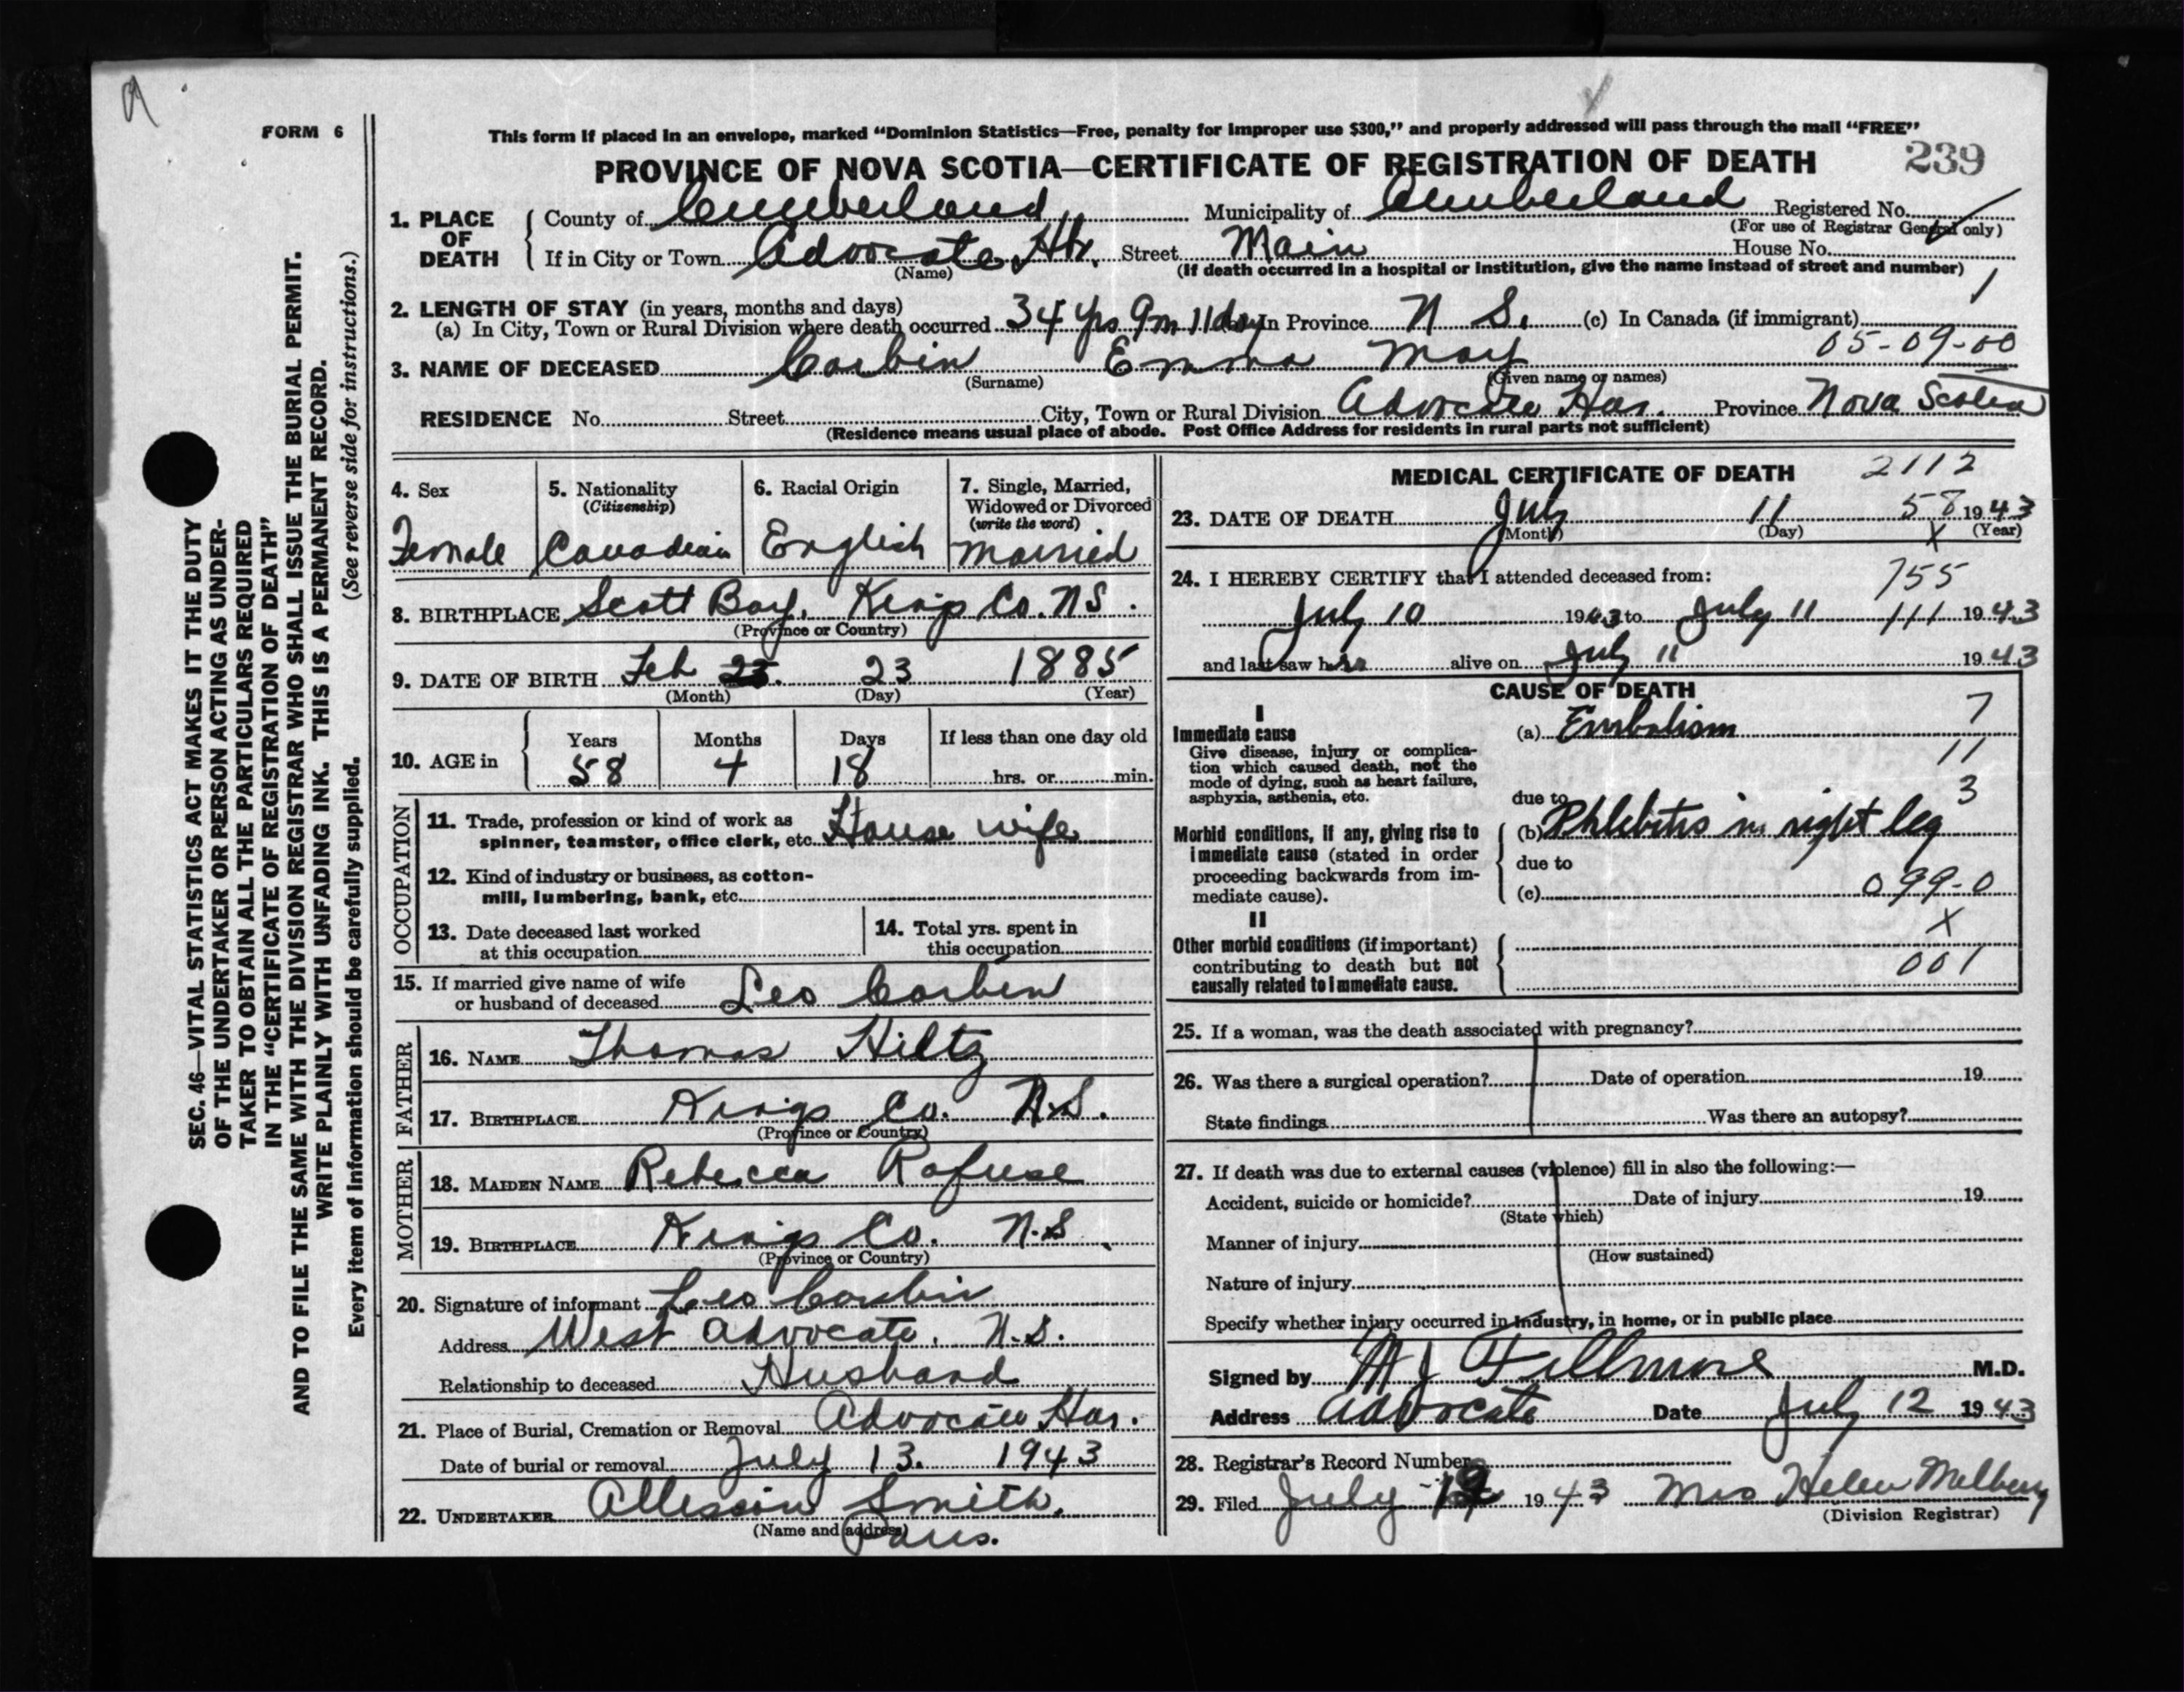 FORM 6
This form if placed in an envelope, marked "Dominion Statistics—Free, penalty for improper use $300," and properly addressed will pass through the mail "FREE"
PROVINCE OF NOVA SCOTIA—CERTIFICATE OF REGISTRATION OF DEATH 239
1. PLACE OF DEATH
County of Cumberland Municipality of Cumberland Registered No.
(For use of Registrar General only)
If in City or Town Advocate Hr. Street Main House No.
(Name) (If death occurred in a hospital or institution, give the name instead of street and number)
1
2. LENGTH OF STAY (in years, months and days)
(a) In City, Town or Rural Division where death occurred 34 yrs 9m 11 day In Province N S. (c) In Canada (if immigrant)
05-09-00
3. NAME OF DECEASED Corbin Emma May
(Surname) (Given name or names)
RESIDENCE No. Street City, Town or Rural Division Advocate Har. Province Nova Scotia
(Residence means usual place of abode. Post Office Address for residents in rural parts not sufficient)
4. Sex
Female
5. Nationality
(Citizenship)
Canadian
6. Racial Origin
English
7. Single, Married,
Widowed or Divorced
(write the word)
Married
8. BIRTHPLACE Scott Bay, Kings Co. NS.
(Province or Country)
9. DATE OF BIRTH Feb 23 1885
(Month) (Day) (Year)
10. AGE in
Years Months Days If less than one day old
58 4 18 hrs. or min.
OCCUPATION
11. Trade, profession or kind of work as
spinner, teamster, office clerk, etc. House wife
12. Kind of industry or business, as cotton-
mill, lumbering, bank, etc.
13. Date deceased last worked
at this occupation
14. Total yrs. spent in
this occupation
15. If married give name of wife
or husband of deceased Leo Corbin
FATHER
16. NAME Thomas Hiltz
17. BIRTHPLACE Kings Co. N.S.
(Province or Country)
MOTHER
18. MAIDEN NAME Rebecca Rafuse
19. BIRTHPLACE Kings Co. N.S.
(Province or Country)
20. Signature of informant Leo Corbin
Address West Advocate, N.S.
Relationship to deceased Husband
21. Place of Burial, Cremation or Removal Advocate Har.
Date of burial or removal July 13. 1943
22. UNDERTAKER Allison Smith.
(Name and address)
MEDICAL CERTIFICATE OF DEATH 2112
23. DATE OF DEATH July 11 58 1943
(Month) (Day) X (Year)
24. I HEREBY CERTIFY that I attended deceased from:
755
July 10 1943 to July 11 111 1943
and last saw her alive on July 11 1943
CAUSE OF DEATH
I
Immediate cause
Give disease, injury or complica-
tion which caused death, not the
mode of dying, such as heart failure,
asphyxia, asthenia, etc.
(a) Embolism 7
11
due to 3
Morbid conditions, if any, giving rise to
immediate cause (stated in order
proceeding backwards from im-
mediate cause).
(b) Phlebitis in right leg
due to
(c) 099-0
II
X
Other morbid conditions (if important)
contributing to death but not
causally related to immediate cause.
001
25. If a woman, was the death associated with pregnancy?
26. Was there a surgical operation? Date of operation 19
State findings Was there an autopsy?
27. If death was due to external causes (violence) fill in also the following:—
Accident, suicide or homicide? Date of injury 19
(State which)
Manner of injury
(How sustained)
Nature of injury
Specify whether injury occurred in industry, in home, or in public place
Signed by M J Fillmore M.D.
Address Advocate Date July 12 1943
28. Registrar's Record Number
29. Filed July 1943 Mrs Helen
(Division Registrar)
SEC. 46—VITAL STATISTICS ACT MAKES IT THE DUTY
OF THE UNDERTAKER OR PERSON ACTING AS UNDER-
TAKER TO OBTAIN ALL THE PARTICULARS REQUIRED
IN THE "CERTIFICATE OF REGISTRATION OF DEATH"
AND TO FILE THE SAME WITH THE DIVISION REGISTRAR WHO SHALL ISSUE THE BURIAL PERMIT.
WRITE PLAINLY WITH UNFADING INK. THIS IS A PERMANENT RECORD.
Every item of information should be carefully supplied. (See reverse side for instructions.)